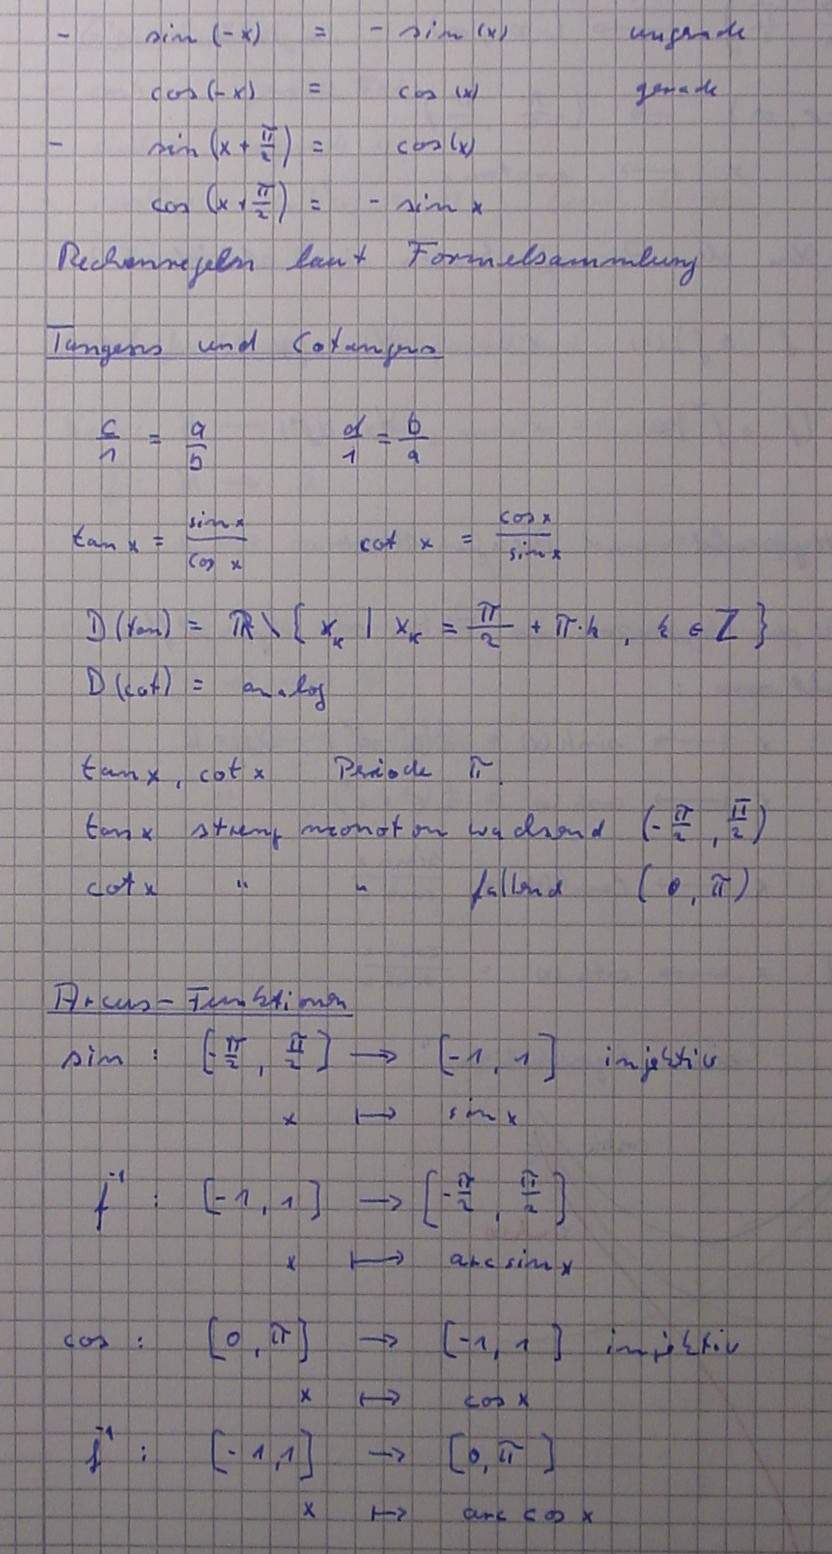 - sin (-x) = - sin (x) ungerade
cos (-x) = cos (x) gerade
- sin (x + π/2) = cos (x)
cos (x + π/2) = - sin x
Rechenregeln laut Formelsammlung
Tangens und Cotangens
c/1 = a/b d/1 = b/a
tan x = sin x/cos x cot x = cos x/sin x
D (tan) = ℝ \ { xₖ | xₖ = π/2 + π·k , k ∈ ℤ }
D (cot) = analog
tan x , cot x Periode π.
tan x streng monoton wachsend (-π/2 , π/2)
cot x " " fallend (0, π)
Arcus-Funktionen
sin : [-π/2 , π/2] → [-1, 1] injektiv
x ↦ sin x
f⁻¹ : [-1, 1] → [-π/2 , π/2]
x ↦ arc sin x
cos : [0, π] → [-1, 1] injektiv
x ↦ cos x
f⁻¹ : [-1, 1] → [0, π]
x ↦ arc cos x